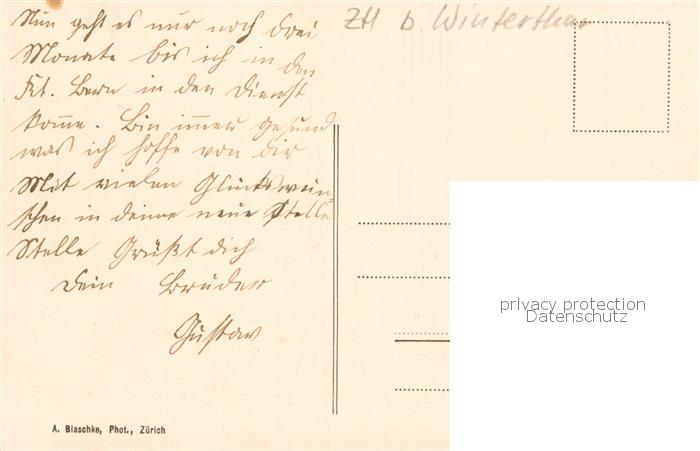 Nun geht es nur noch drei
Monate bis ich in den
Kt. Bern in den Dienst
komme. Bin immer gesund
was ich hoffe von dir
Mit vielen Glückswün-
schen in deine neue Stelle
Stelle Grüßt dich
Dein Bruder
Gustav
ZH b. Winterthur
privacy protection
Datenschutz
A. Blaschke, Phot., Zürich